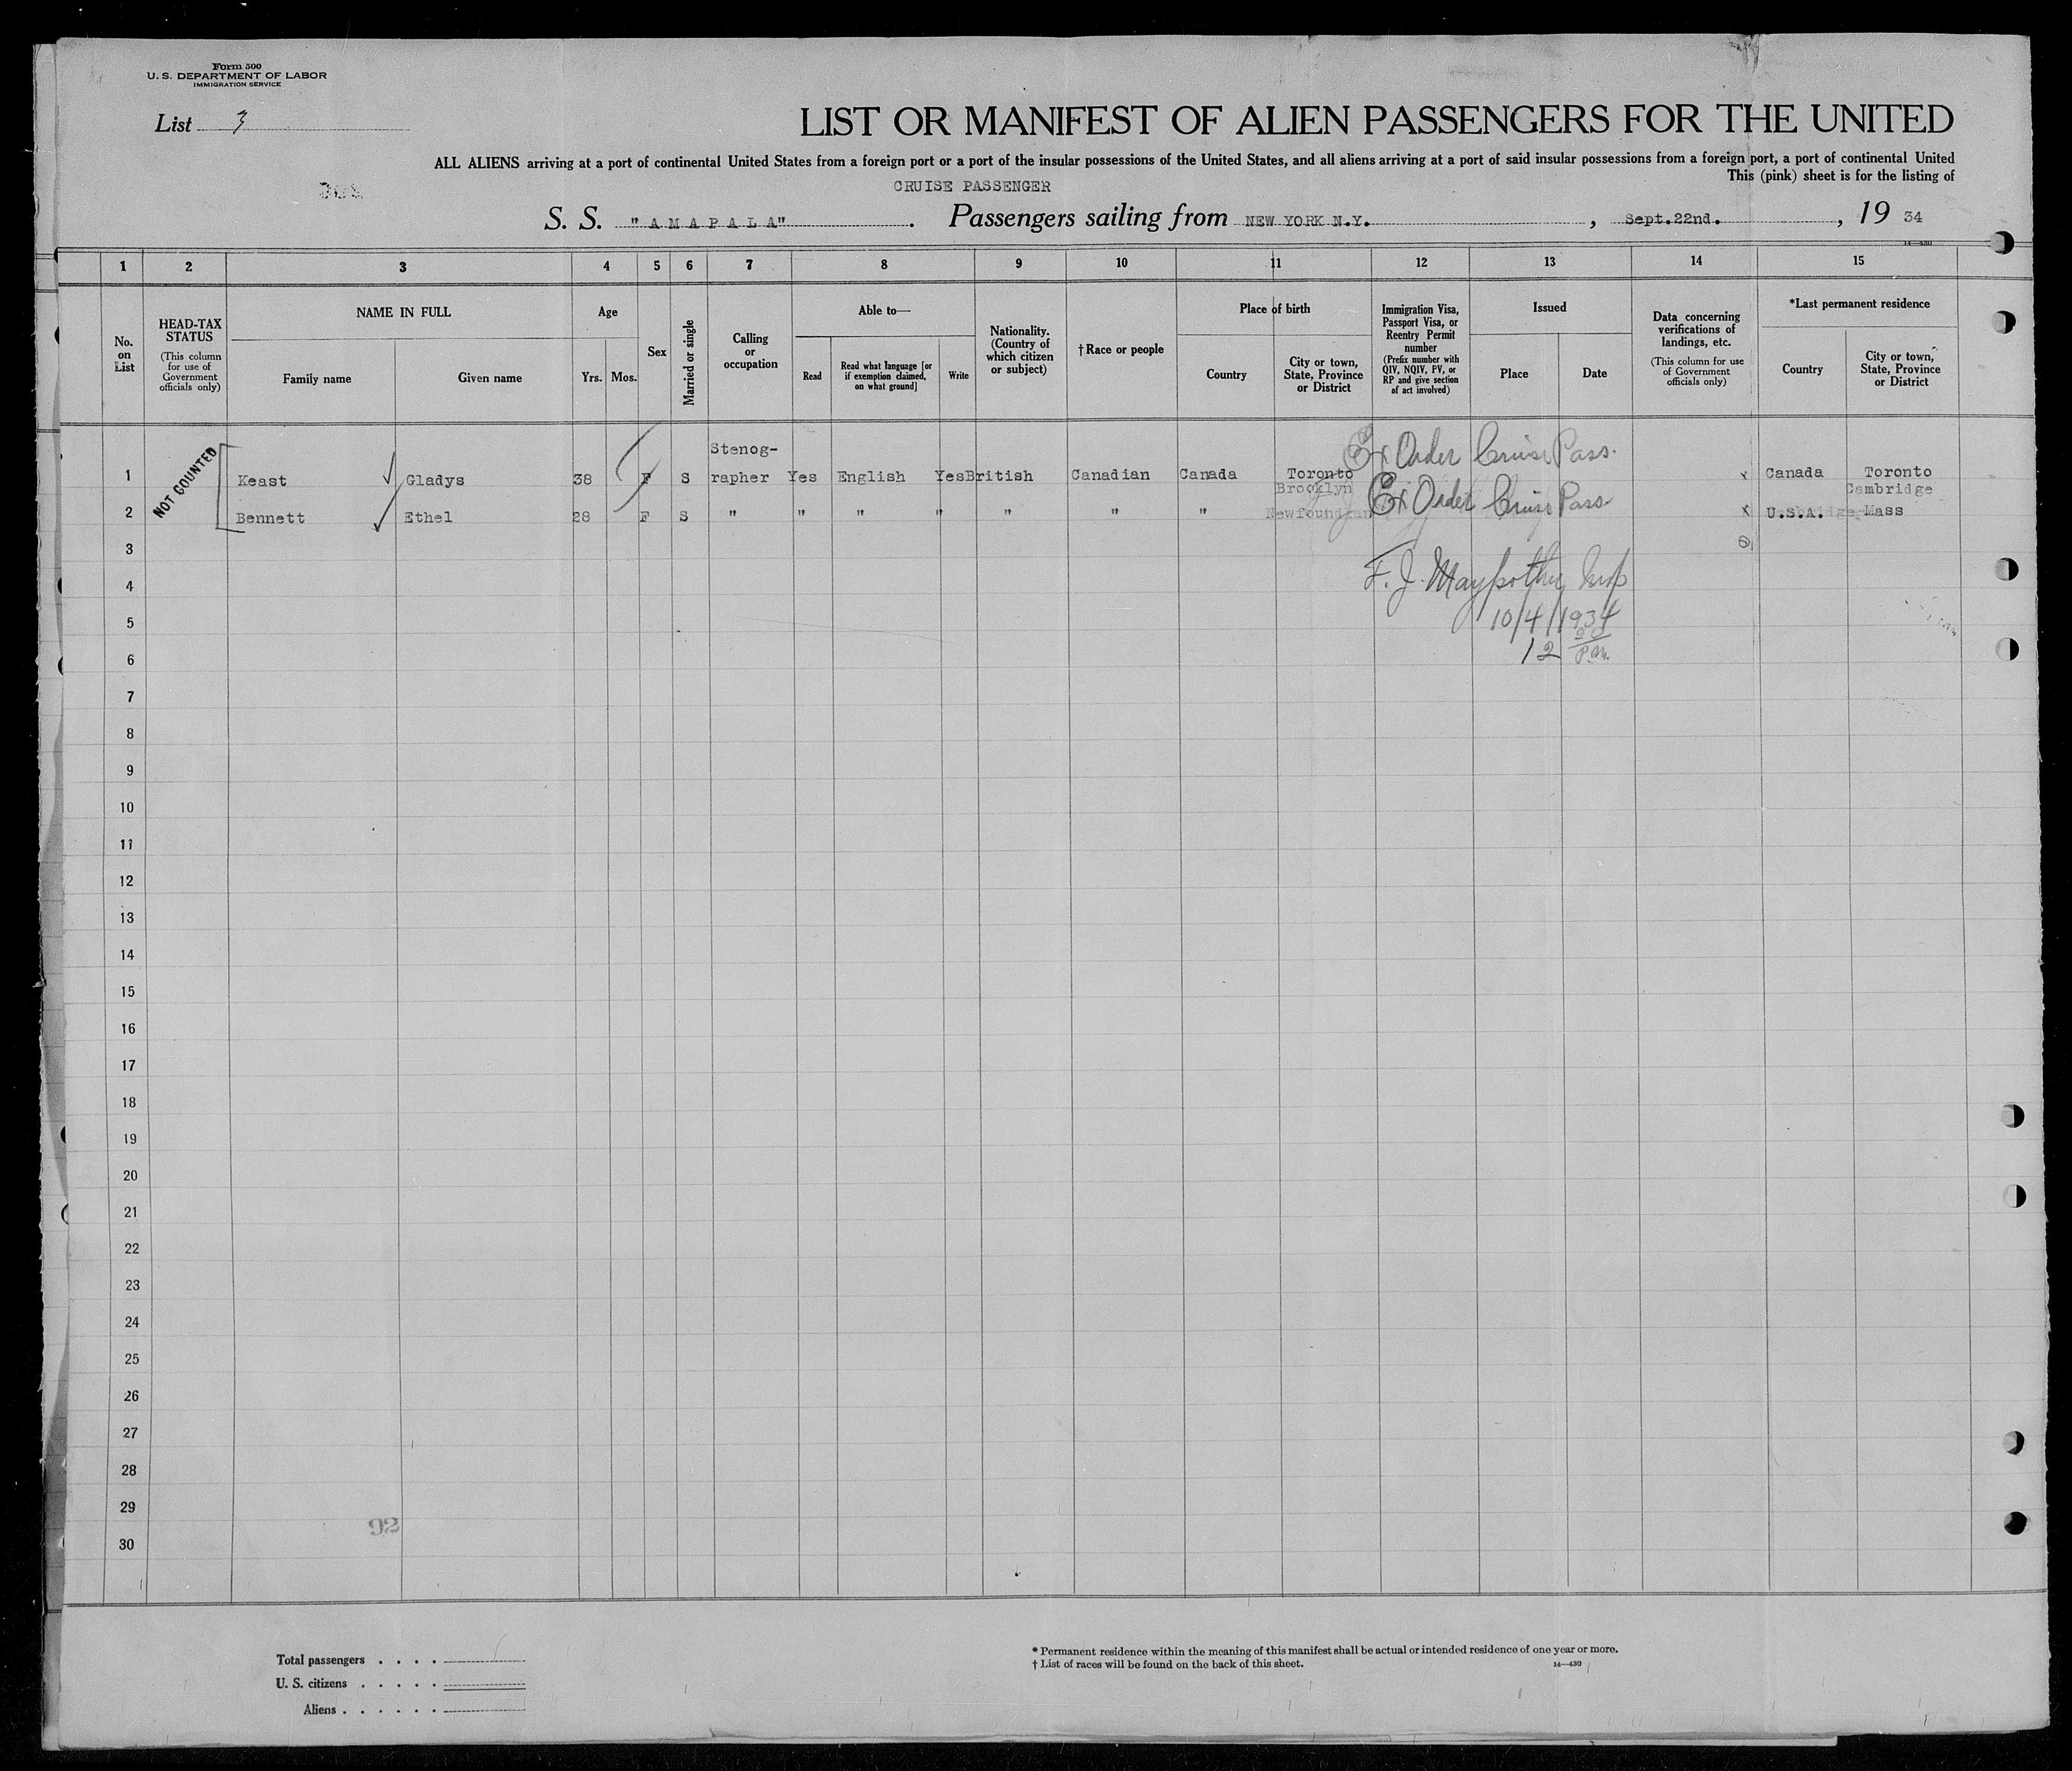 Form 500
U. S. DEPARTMENT OF LABOR
IMMIGRATION SERVICE
List 3
LIST OR MANIFEST OF ALIEN PASSENGERS FOR THE UNITED
ALL ALIENS arriving at a port of continental United States from a foreign port or a port of the insular possessions of the United States, and all aliens arriving at a port of said insular possessions from a foreign port, a port of continental United
This (pink) sheet is for the listing of
CRUISE PASSENGER
S. S. "AMAPALA". Passengers sailing from NEW YORK N.Y., Sept.22nd., 19 34
14—430
1 2 3 4 5 6 7 8 9 10 11 12 13 14 15
No. on List
HEAD-TAX STATUS
(This column for use of Government officials only)
NAME IN FULL
Family name
Given name
Age
Yrs.
Mos.
Sex
Married or single
Calling or occupation
Able to—
Read
Read what language [or if exemption claimed, on what ground]
Write
Nationality. (Country of which citizen or subject)
† Race or people
Place of birth
Country
City or town, State, Province or District
Immigration Visa, Passport Visa, or Reentry Permit number
(Prefix number with QIV, NQIV, PV, or RP and give section of act involved)
Issued
Place
Date
Data concerning verifications of landings, etc.
(This column for use of Government officials only)
*Last permanent residence
Country
City or town, State, Province or District
NOT COUNTED
Stenog-
1 Keast Gladys 38 F S rapher Yes English Yes British Canadian Canada Toronto Ex Order Cruise Pass. x Canada Toronto
Brooklyn Cambridge
2 Bennett Ethel 28 F S " " " " " " " Newfoundlan Ex Order Cruise Pass x U.S.A. Mass
3
4 F. J.
5 10/4/1934
6 12 P.M.
7
8
9
10
11
12
13
14
15
16
17
18
19
20
21
22
23
24
25
26
27
28
29
92
30
Total passengers . . . .
U. S. citizens . . . . .
Aliens . . . . . .
* Permanent residence within the meaning of this manifest shall be actual or intended residence of one year or more.
† List of races will be found on the back of this sheet.
14—430